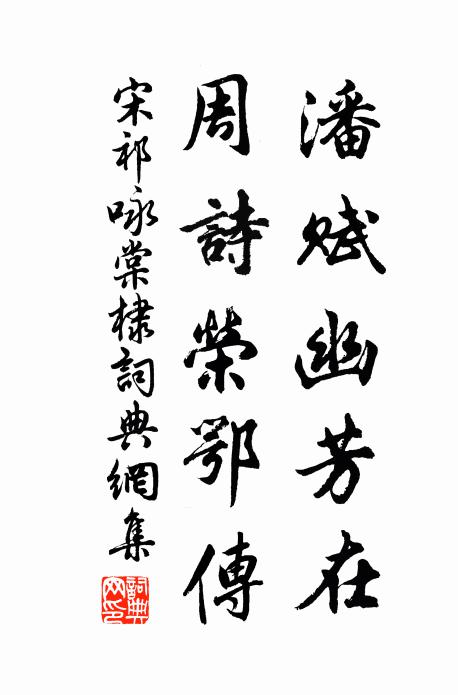 潘賦幽芳在
周詩榮鄂傳
宋祁咏棠棣詞典網集
詞典网印